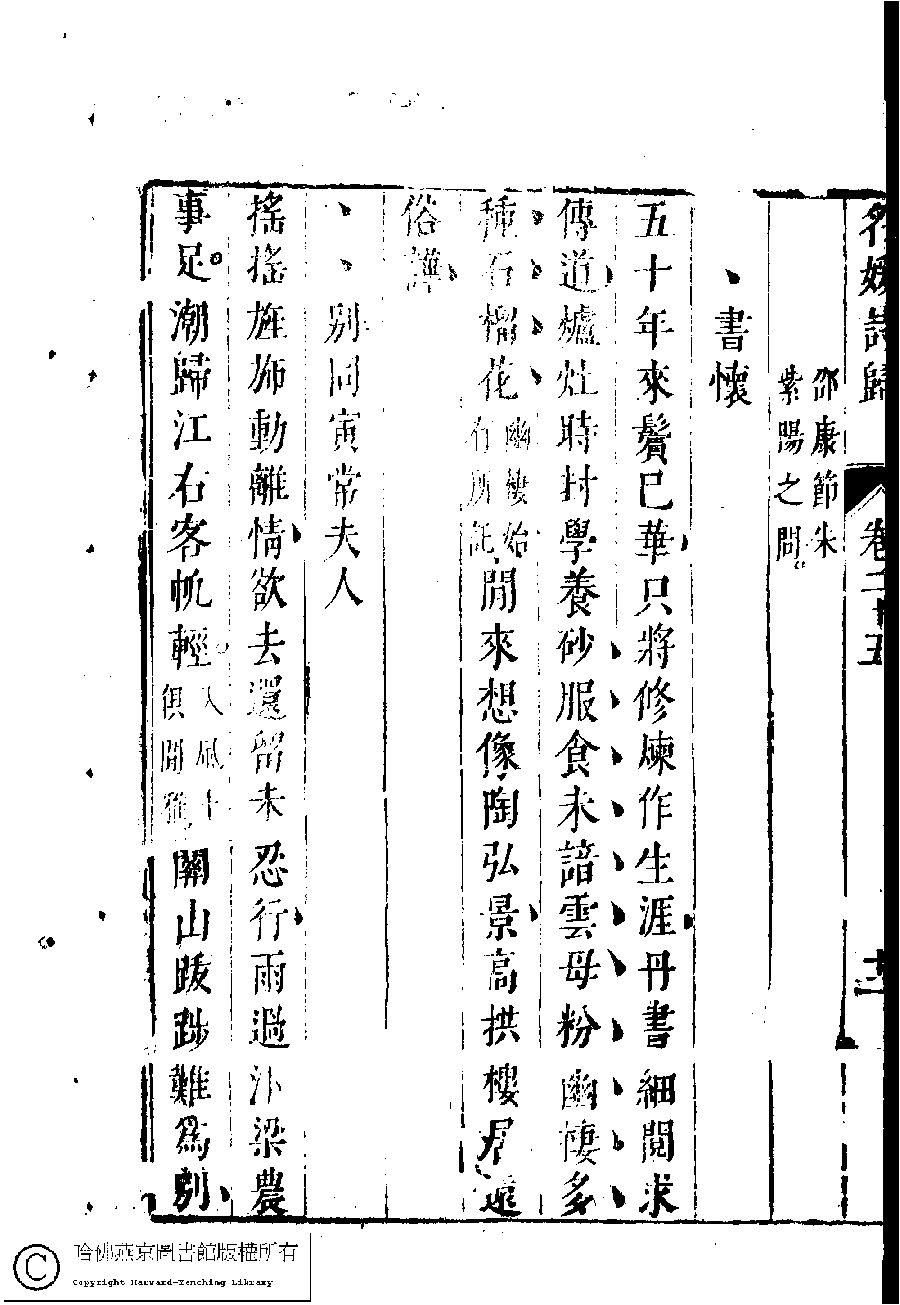 名媛詩歸 卷二十五 十二
邵康節朱
紫陽之間
書懷
五十年來鬢已華只將修煉作生涯丹書細閱求
傳道爐灶時村學養砂服食未諳雲母粉幽棲多
種石榴花幽棲始有所託閒來想像陶弘景高拱樓居遠
俗譁
別同寅常夫人
搖搖旌旆動離情欲去還留未忍行雨過汴梁農
事足潮歸江右客帆輕入風十俱閒雅關山跋踄難為別
哈佛燕京圖書館版權所有
Copyright Harvard-Yenching Library